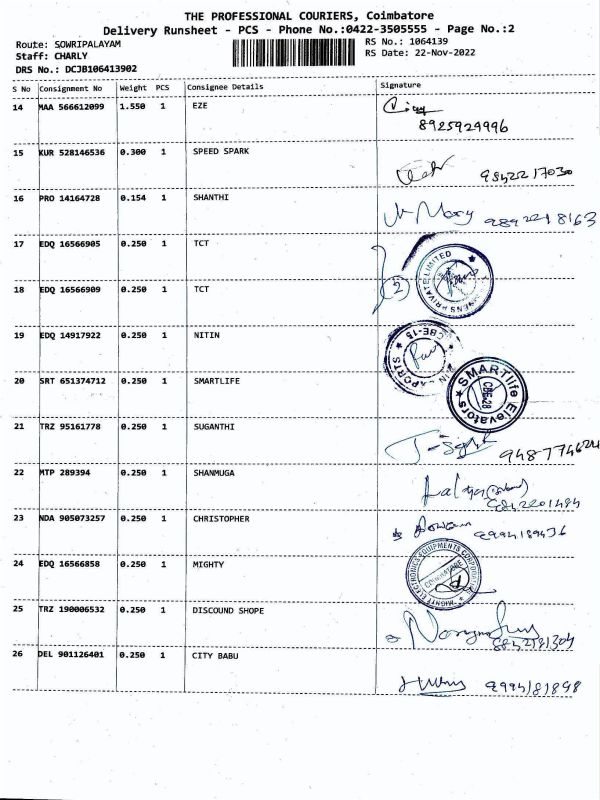 THE PROFESSIONAL COURIERS, Coimbatore
Delivery Runsheet - PCS - Phone No.:0422-3505555 - Page No.:2
Route: SOWRIPALAYAM
RS No.: 1064139
Staff: CHARLY
RS Date: 22-Nov-2022
DRS No.: DCJB106413902
S No Consignment No Weight PCS Consignee Details Signature
14 MAA 566612099 1.550 1 EZE
8925929996
15 KUR 528146536 0.300 1 SPEED SPARK
9842217030
16 PRO 14164728 0.154 1 SHANTHI
Mary 9892218163
17 EDQ 16566905 0.250 1 TCT
PRIVATE LIMITED
18 EDQ 16566909 0.250 1 TCT
2
19 EDQ 14917922 0.250 1 NITIN
CBE-15
20 SRT 651374712 0.250 1 SMARTLIFE
SMARTlife Elevators
CBE-28
21 TRZ 95161778 0.250 1 SUGANTHI
22 MTP 289394 0.250 1 SHANMUGA
9842201484
23 NDA 905073257 0.250 1 CHRISTOPHER
9994189436
24 EDQ 16566858 0.250 1 MIGHTY
MIGHTY ELECTRONICS EQUIPMENTS CORPORATION
COIMBATORE
25 TRZ 190006532 0.250 1 DISCOUND SHOPE
26 DEL 901126401 0.250 1 CITY BABU
9994181898